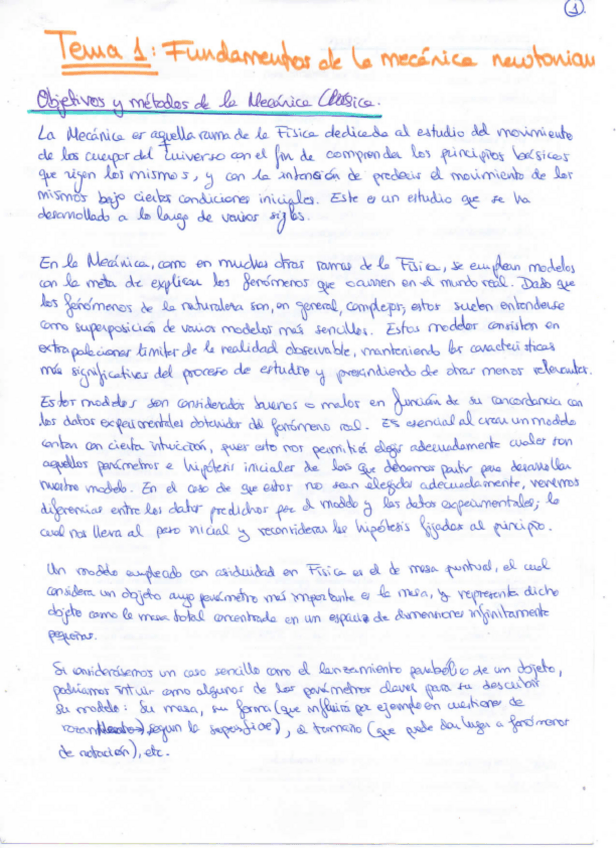 1.
Tema 1: Fundamentos de la mecánica newtonian
Objetivos y métodos de la Mecánica Clásica.
La Mecánica es aquella rama de la Física dedicada al estudio del movimiento
de los cuerpos del Universo con el fin de comprender los principios básicos
que rigen los mismos, y con la intención de predecir el movimiento de los
mismos bajo ciertas condiciones iniciales. Este es un estudio que se ha
desarrollado a lo largo de varios siglos.
En la Mecánica, como en muchas otras ramas de la Física, se emplean modelos
con la meta de explicar los fenómenos que ocurren en el mundo real. Dado que
los fenómenos de la naturaleza son, en general, complejos, estos suelen entenderse
como superposición de varios modelos más sencillos. Estos modelos consisten en
extrapolaciones límites de la realidad observable, manteniendo las características
más significativas del proceso de estudio y prescindiendo de otras menos relevantes.
Estos modelos son considerados buenos o malos en función de su concordancia con
los datos experimentales obtenidos del fenómeno real. Es esencial al crear un modelo
contar con cierta intuicción, pues esto nos permitirá elegir adecuadamente cuales son
aquellos parámetros e hipótesis iniciales de las que debemos partir para desarrollar
nuestro modelo. En el caso de que estos no sean elegidos adecuadamente, veremos
diferencias entre los datos predichos por el modelo y los datos experimentales; lo
cual nos lleva al paso inicial y reconsiderar las hipótesis fijadas al principio.
Un modelo empleado con asiduidad en Física es el de masa puntual, el cual
considera un objeto cuyo parámetro más importante es la masa, y representa dicho
objeto como la masa total concentrada en un espacio de dimensiones infinitamente
pequeñas.
Si considerásemos un caso sencillo como el lanzamiento parabólico de un objeto,
podríamos intuir como algunos de los parámetros claves para su describir
su modelo: Su masa, su forma (que influirá por ejemplo en cuestiones de
rozamiento, según la superficie), el tamaño (que puede dar lugar a fenómenos
de rotación), etc.